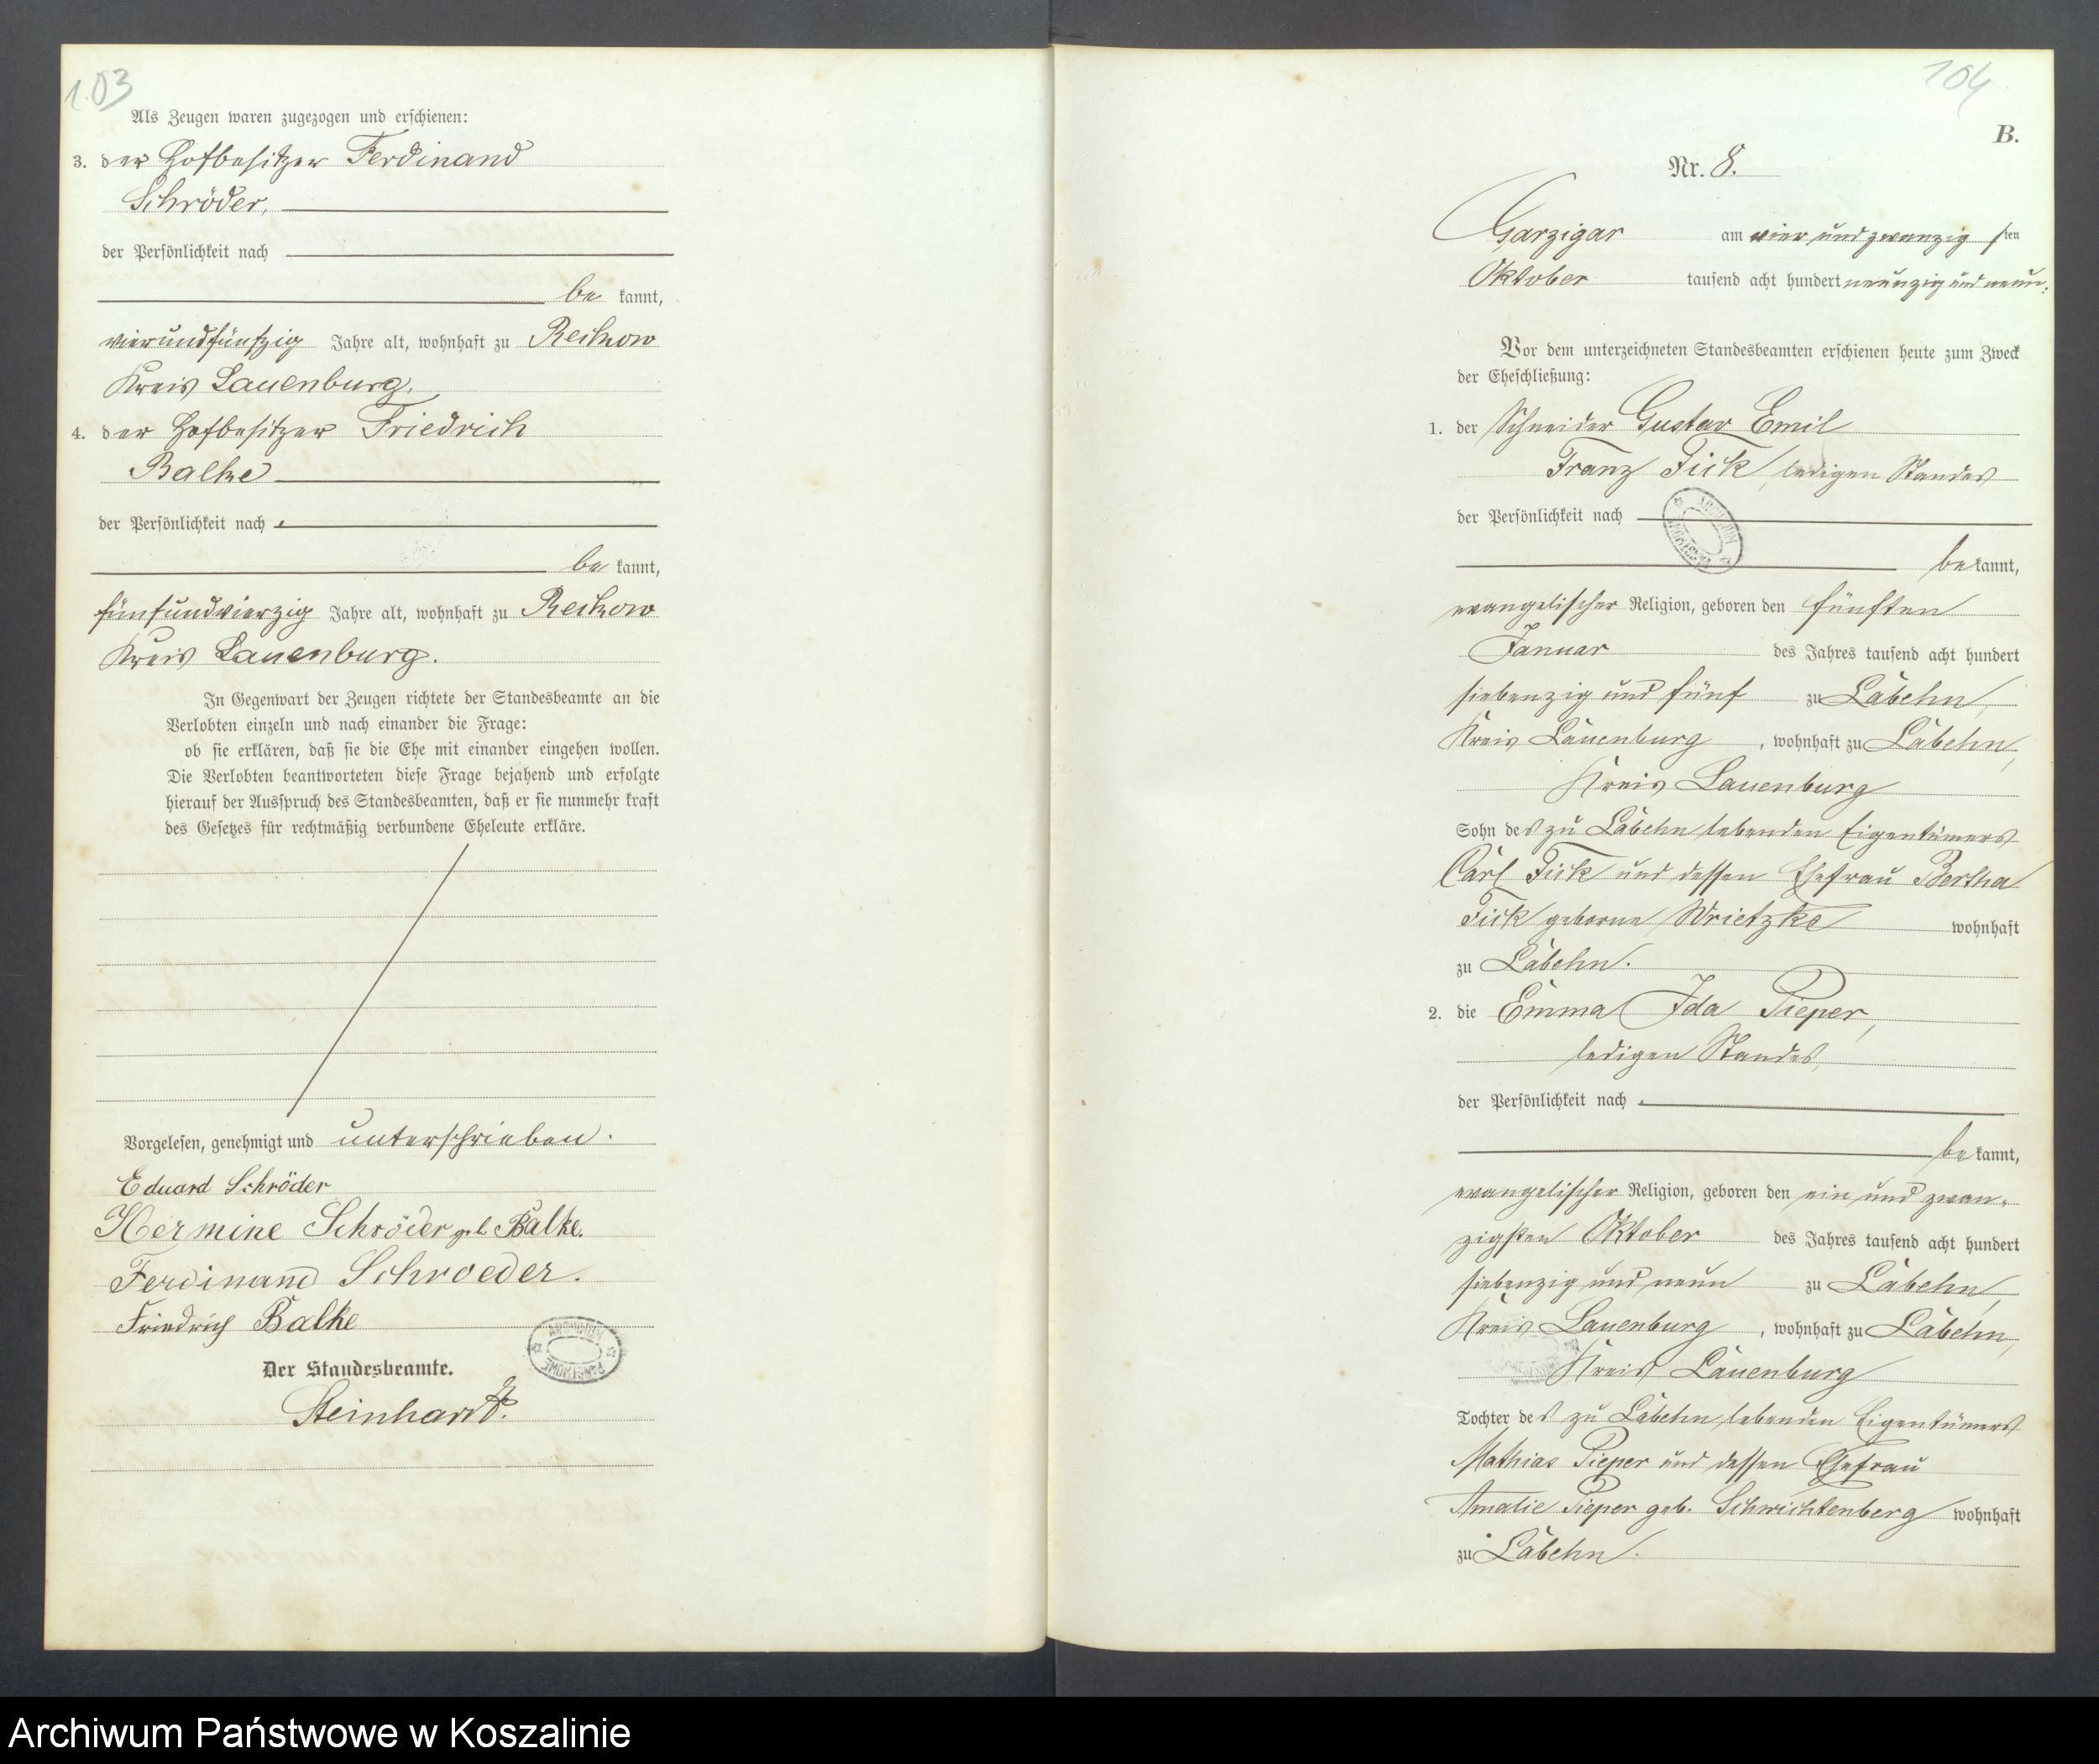 1.03
Als Zeugen waren zugezogen und erschienen:
3. der Hofbesitzer Ferdinand
Schröder,
der Persönlichkeit nach
be kannt,
vierundfünfzig Jahre alt, wohnhaft zu Reckow
Kreis Lauenburg.
4. der Hofbesitzer Friedrich
Balke
der Persönlichkeit nach
be kannt,
fünfundvierzig Jahre alt, wohnhaft zu Reckow
Kreis Lauenburg.
In Gegenwart der Zeugen richtete der Standesbeamte an die
Verlobten einzeln und nach einander die Frage:
ob sie erklären, daß sie die Ehe mit einander eingehen wollen.
Die Verlobten beantworteten diese Frage bejahend und erfolgte
hierauf der Ausspruch des Standesbeamten, daß er sie nunmehr kraft
des Gesetzes für rechtmäßig verbundene Eheleute erkläre.
Vorgelesen, genehmigt und unterschrieben.
Eduard Schröder
Hermine Schröder geb Balke.
Ferdinand Schroeder.
Friedrich Balke
Der Standesbeamte.
Steinhardt.
ARCHIWUM PAŃSTWOWE
104
B.
Nr. 8.
Garzigar am vier und zwanzig sten
Oktober tausend acht hundert neunzig und neun.
Vor dem unterzeichneten Standesbeamten erschienen heute zum Zweck
der Eheschließung:
1. der Schneider Gustav Emil
Franz Fick, ledigen Standes
der Persönlichkeit nach
be kannt,
evangelischer Religion, geboren den fünften
Januar des Jahres tausend acht hundert
siebenzig und fünf zu Labehn,
Kreis Lauenburg, wohnhaft zu Labehn,
Kreis Lauenburg
Sohn des zu Labehn lebenden Eigentümers
Carl Fick und dessen Ehefrau Bertha
Fick geborne Wrietzke wohnhaft
zu Labehn.
2. die Emma Ida Pieper,
ledigen Standes,
der Persönlichkeit nach
be kannt,
evangelischer Religion, geboren den ein und zwan-
zigsten Oktober des Jahres tausend acht hundert
siebenzig und neun zu Labehn,
Kreis Lauenburg, wohnhaft zu Labehn,
Kreis Lauenburg
Tochter des zu Labehn lebenden Eigentümers
Mathias Pieper und dessen Ehefrau
Amalie Pieper geb. Schwichtenberg wohnhaft
zu Labehn.
Archiwum Państwowe w Koszalinie